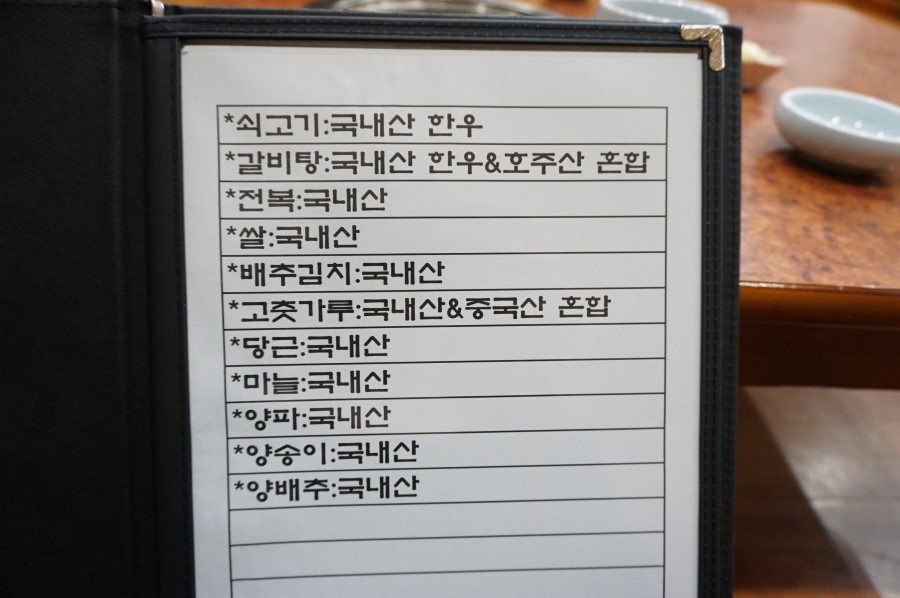 *쇠고기:국내산 한우
*갈비탕:국내산 한우&호주산 혼합
*전복:국내산
*쌀:국내산
*배추김치:국내산
*고춧가루:국내산&중국산 혼합
*당근:국내산
*마늘:국내산
*양파:국내산
*양송이:국내산
*양배추:국내산